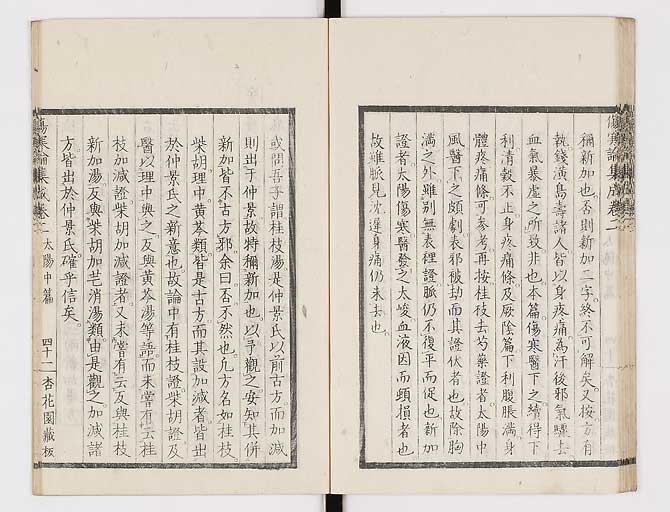 稱新加也否則新加二字終不可解矣又按方有
執錢潢烏壽諸人皆以身疼痛為汗後邪氣驟去
血氣暴虛之所致非也本篇傷寒醫下之續得下
利清穀不止身疼痛條及厥陰篇下利腹脹滿身
體疼痛條可參考再按桂枝去芍藥證者太陽中
風醫下之頗劇表邪被劫而其證伏者也故除胸
滿之外雖別無表裡證脈仍不復平而促也新加
證者太陽傷寒醫發之太峻血液因而頓損者也
故雖脈見沈遲身痛仍未去也
傷寒論集成卷二
或問吾子謂桂枝湯是仲景氏以前古方而加減
則出于仲景故特稱新加也以予觀之安知其併
新加皆不古方邪余曰否不然也凡方名如桂枝
柴胡理中黄芩類皆是古方而其設加減者皆出
於仲景氏之新意也故論中有桂枝證柴胡證及
醫以理中與之反與黄芩湯等語而未嘗有云桂
枝加減證柴胡加減證者又未嘗有云反與桂枝
新加湯反與柴胡加芒消湯類由是觀之加減諸
方皆出於仲景氏確乎信矣
傷寒論集成卷二 太陽中篇 四十一 杏花園藏板